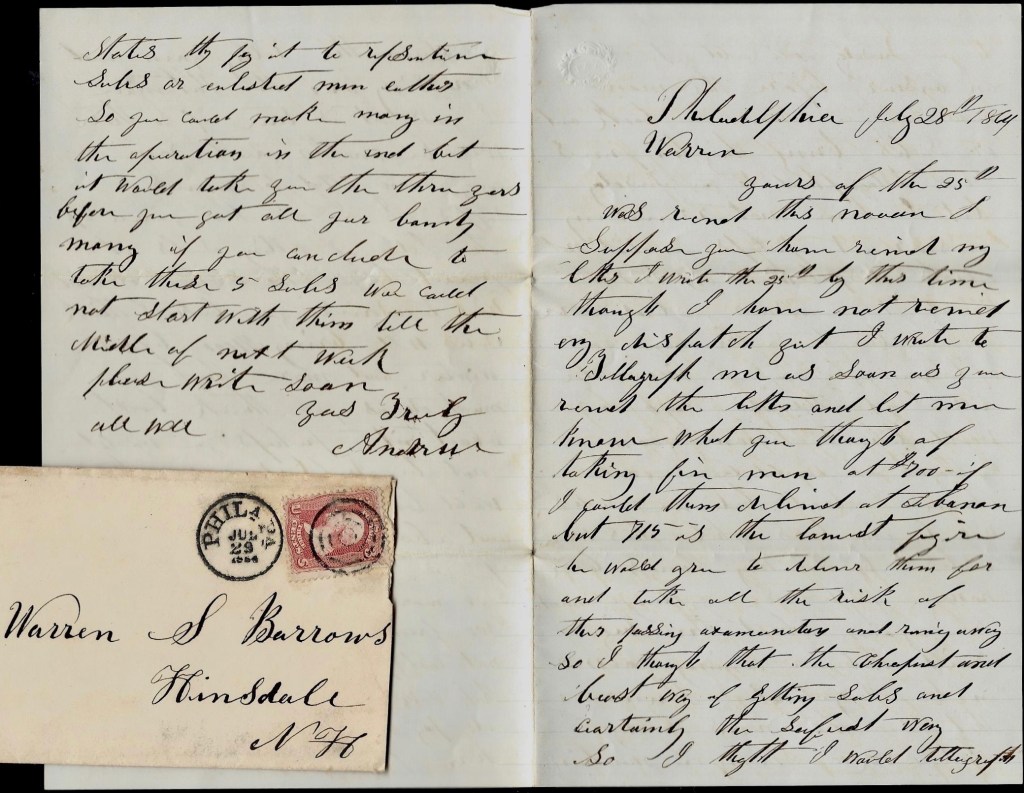 Philadelphia July 28th 1864
Warren
yours of the 25th
was receivd this nooen I
Suppose you have receivd my
letts I wrote the 25th by this time
though I have not receivd
any dispatch yet I wrote to
Tellagraph me as soon as you
receivd the letts and let me
know what you though of
taking five men at $700 - if
I could them deliverd at Lebanan
but 715 is the lowest figire
he would gree to deliver them for
and take all the risk of
their passing and runing away
So I though that the cheapest and
best way of getting Subs and
certainly the safest way
So I thght I would tellagraph
States thy pay it to
Subs or enlisted men either
So you could make mony in
the operation in the end but
it would take you the three years
before you got all your bounty
mony if you conclude to
take these 5 Subs we could
not start with them till the
Middle of next week
please write soon
yours Truly
all well .
Andrew
PHILA PA
JUL
29
1864
Warren S Barrows
Hinsdale
N H